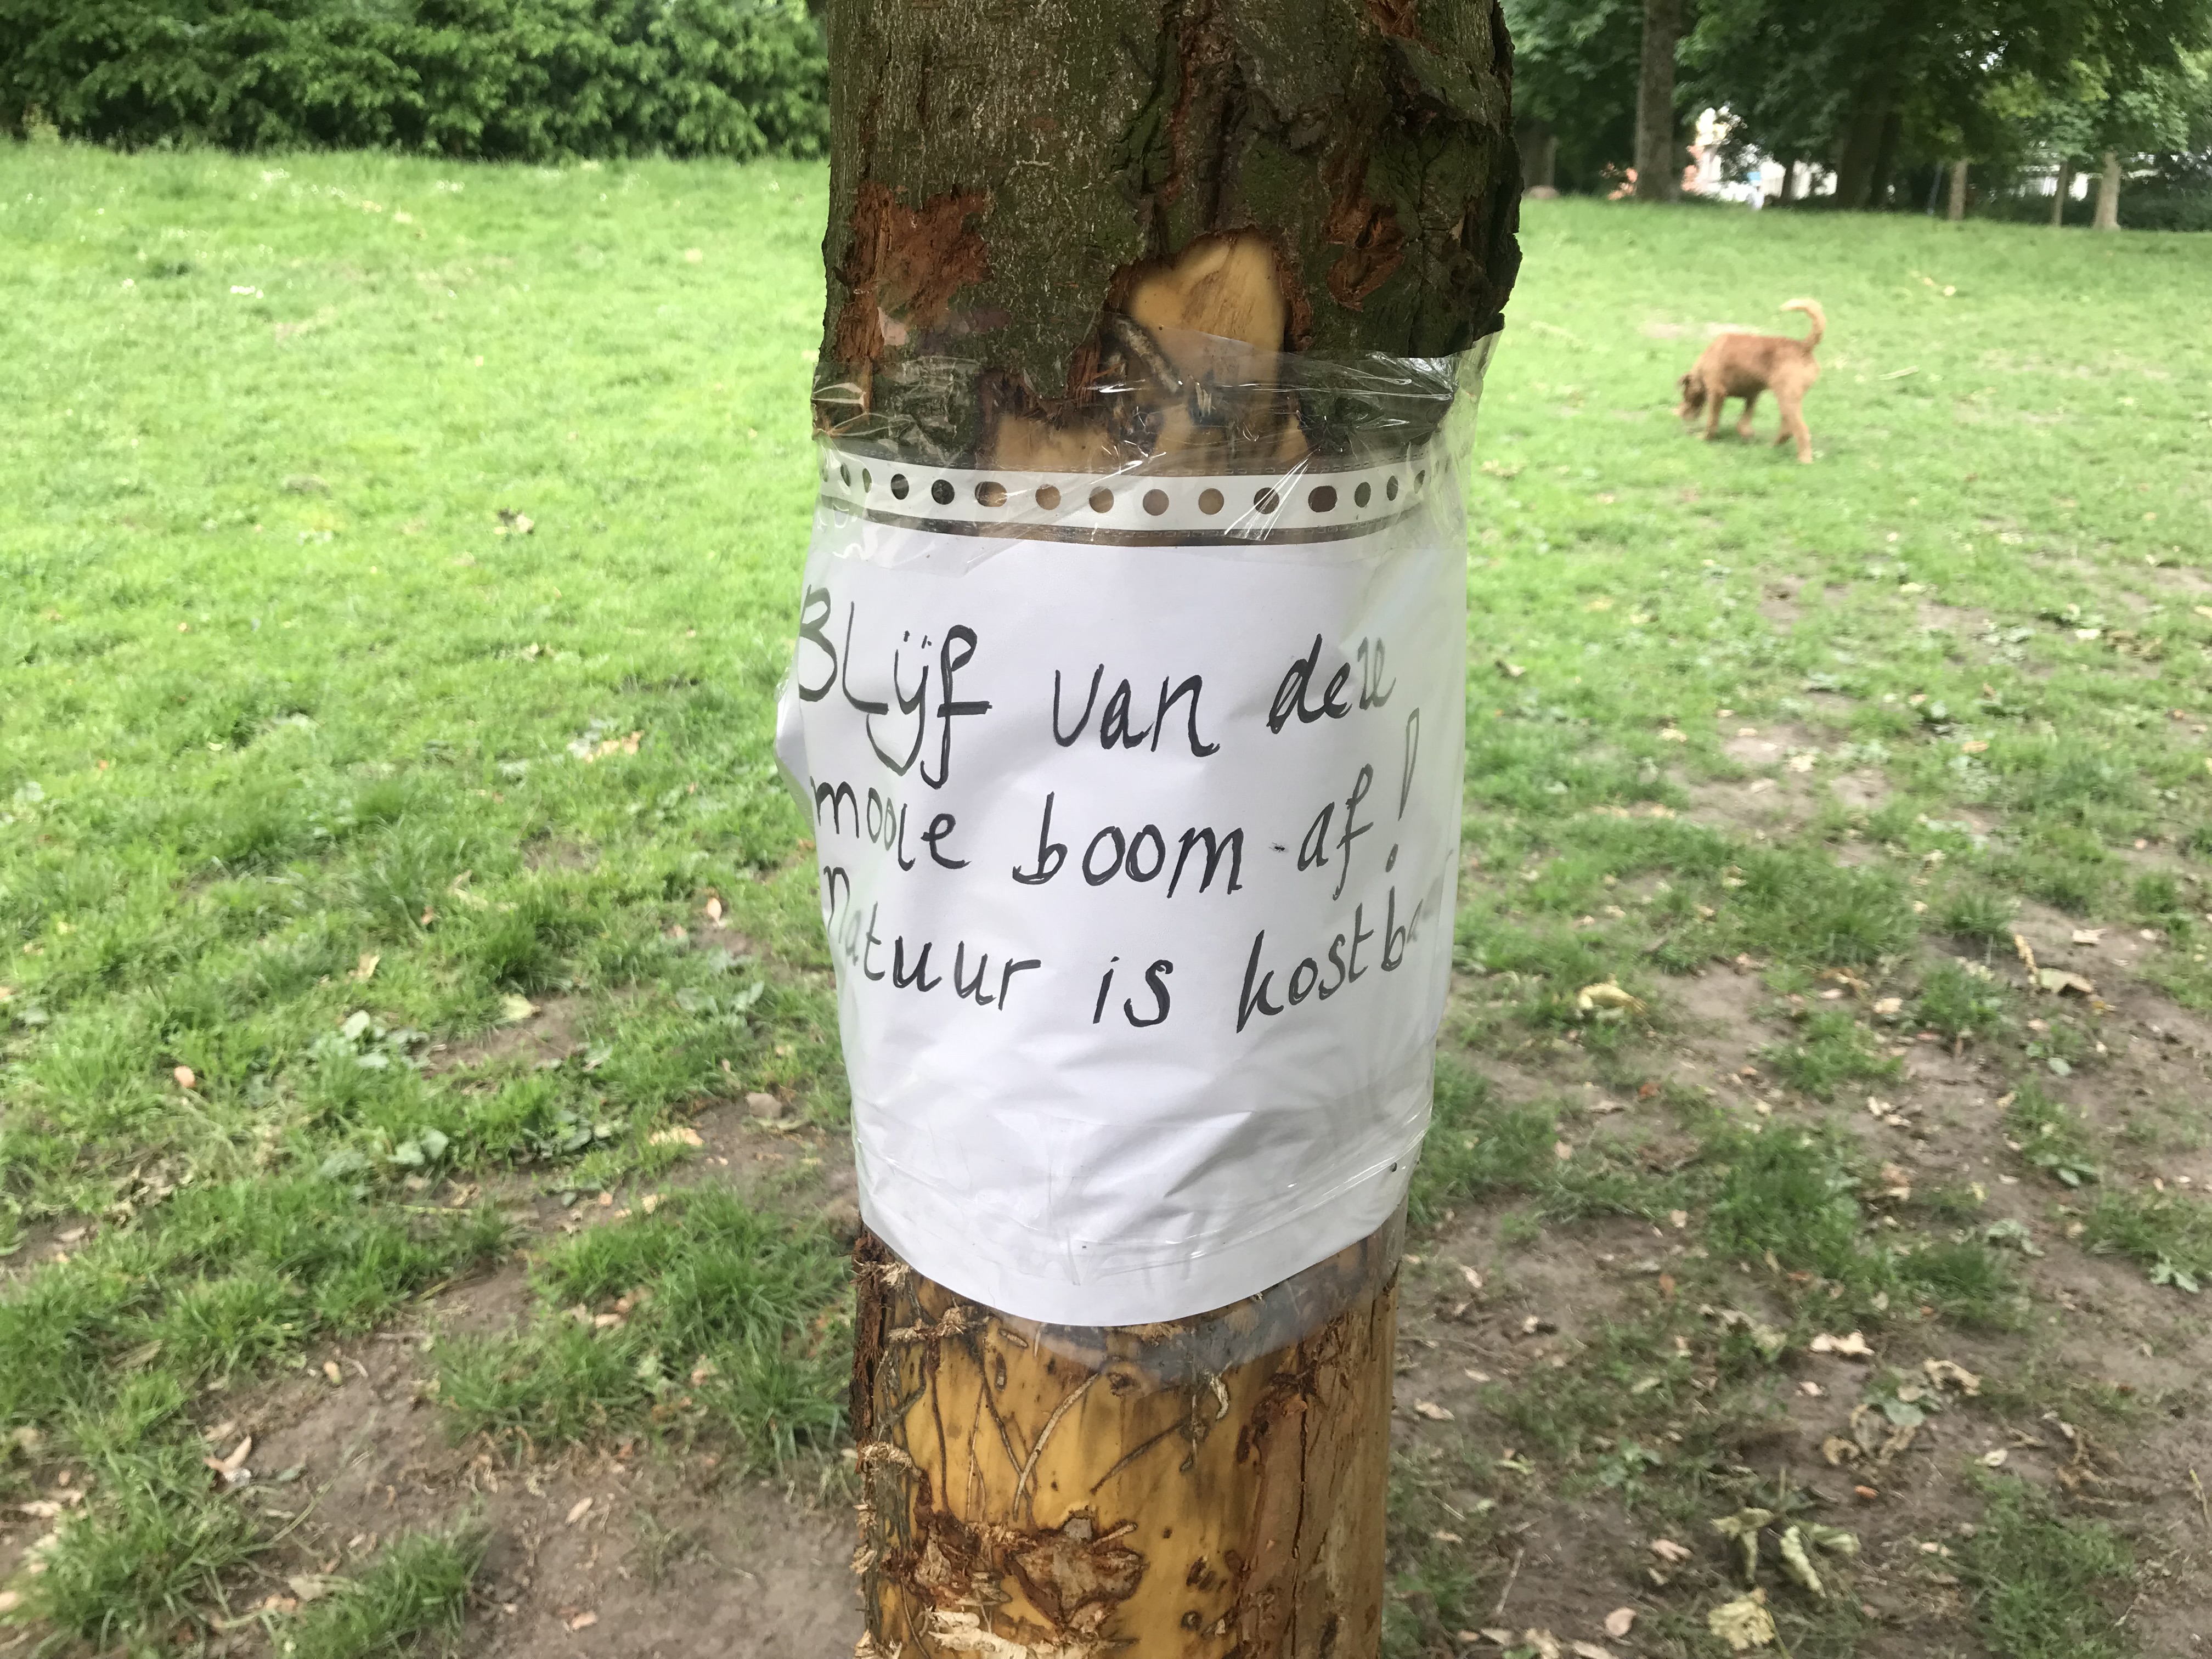 Blijf van deze
mooie boom af!
natuur is kostbaar